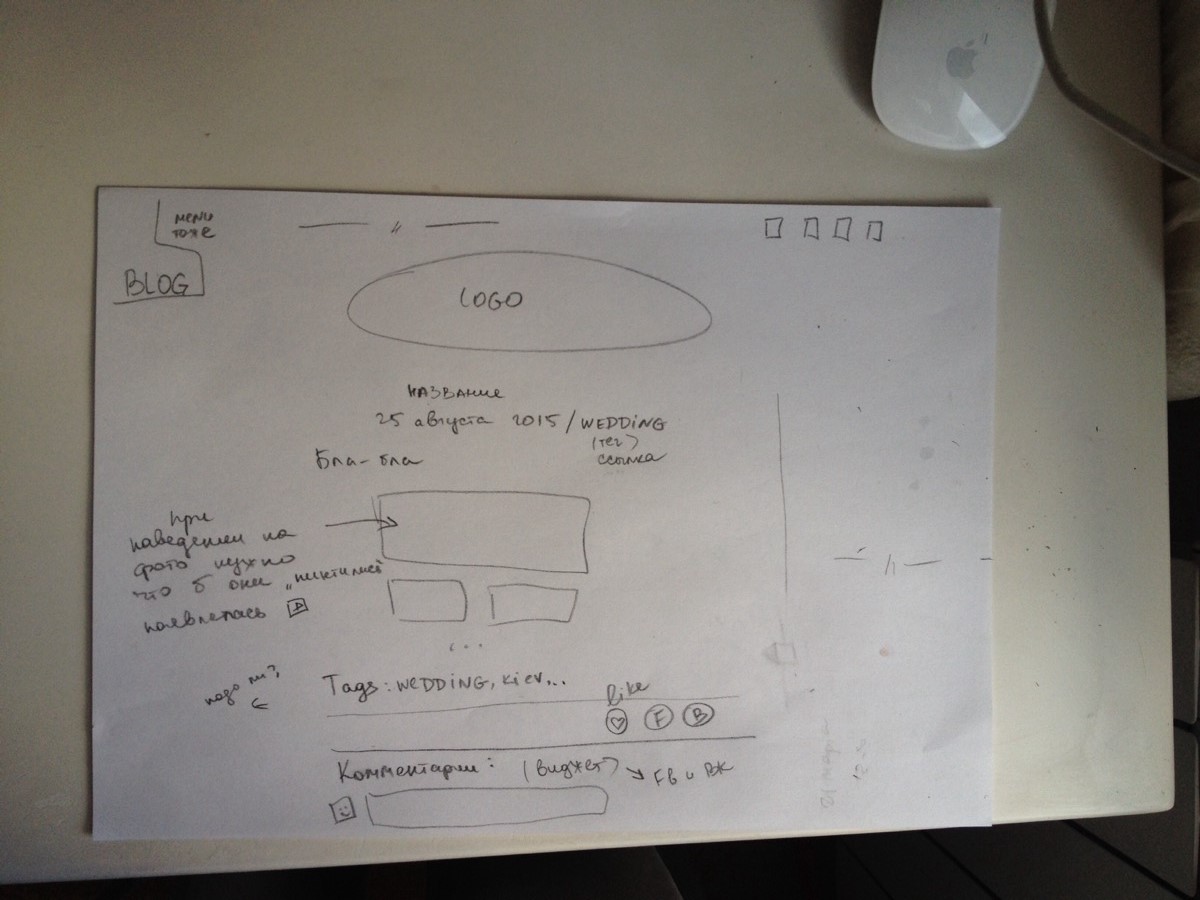 MENU
ТОЖЕ
BLOG
"
LOGO
НАЗВАНИЕ
25 августа 2015 / WEDDING
(тег)
ссылка
Бла-бла
при
наведении на
фото нужно
что б они
появлялась
...
надо ли?
Tags: WEDDING, kiev...
like
F B
Комментарии: (виджет) → FB и ВК